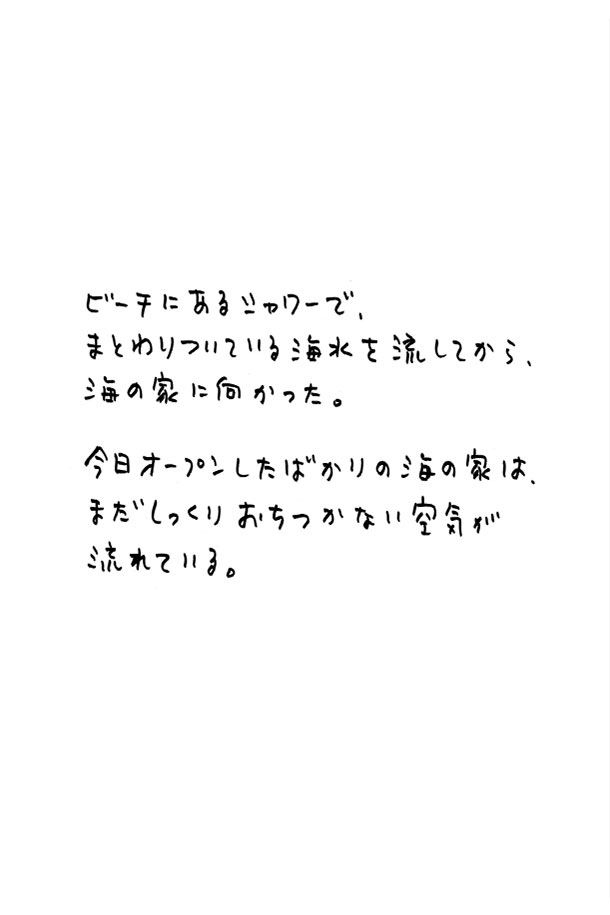 ビーチにあるシャワーで、
まとわりついている海水を流してから、
海の家に向かった。
今日オープンしたばかりの海の家は、
まだしっくりおちつかない空気が
流れている。